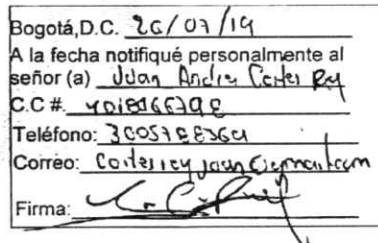 Bogotá,D.C. 26/07/19
A la fecha notifiqué personalmente al
señor (a) Juan Andres Cortes Rey
C.C #.
Teléfono:
Correo: cortesreyjuan@gmail.com
Firma: